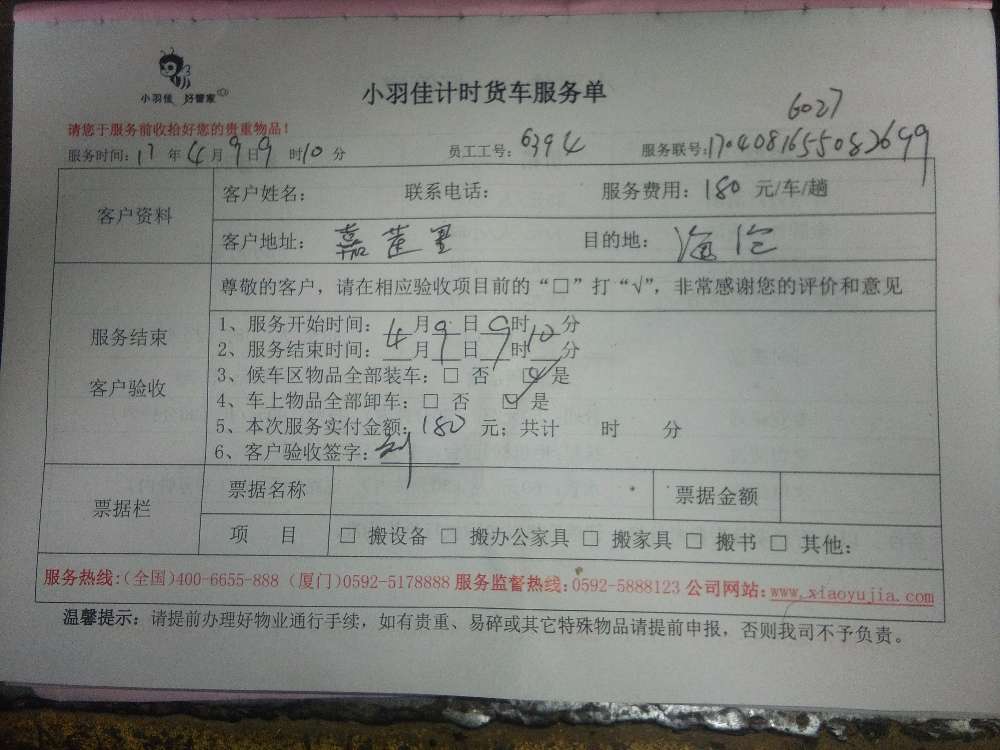 小羽佳 好管家
小羽佳计时货车服务单
6027
请您于服务前收拾好您的贵重物品！
服务时间：17年4月9日9时10分 员工工号：6394 服务联号：17040816550826499
客户资料
客户姓名： 联系电话： 服务费用：180元/车/趟
客户地址：嘉莲里 目的地：海沧
服务结束
客户验收
尊敬的客户，请在相应验收项目前的“□”打“√”，非常感谢您的评价和意见
1、服务开始时间：4月9日9时10分
2、服务结束时间：__月__日__时__分
3、候车区物品全部装车：□ 否 ☑ 是
4、车上物品全部卸车：□ 否 ☑ 是
5、本次服务实付金额：180元；共计 时 分
6、客户验收签字：
票据栏
票据名称 票据金额
项 目 □ 搬设备 □ 搬办公家具 □ 搬家具 □ 搬书 □ 其他：
服务热线：(全国)400-6655-888 (厦门)0592-5178888 服务监督热线：0592-5888123 公司网站：www.xiaoyujia.com
温馨提示：请提前办理好物业通行手续，如有贵重、易碎或其它特殊物品请提前申报，否则我司不予负责。